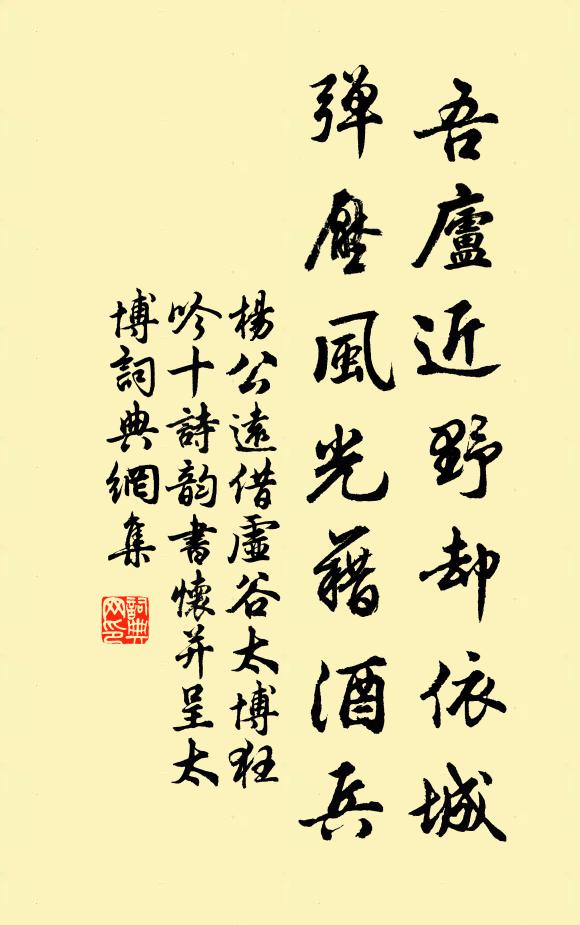 吾廬近野却依城
弹壓風光藉酒兵
楊公遠借虛谷太博狂
吟十詩韵書懷并呈太
博詞典網集
詞典
网印